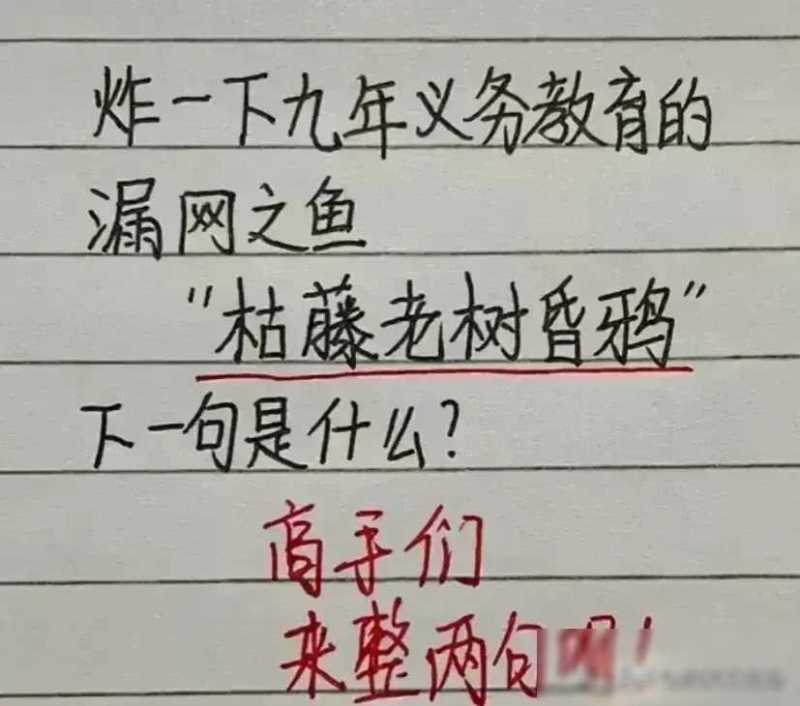 炸一下九年义务教育的
漏网之鱼
“枯藤老树昏鸦”
下一句是什么?
高手们
来整两句